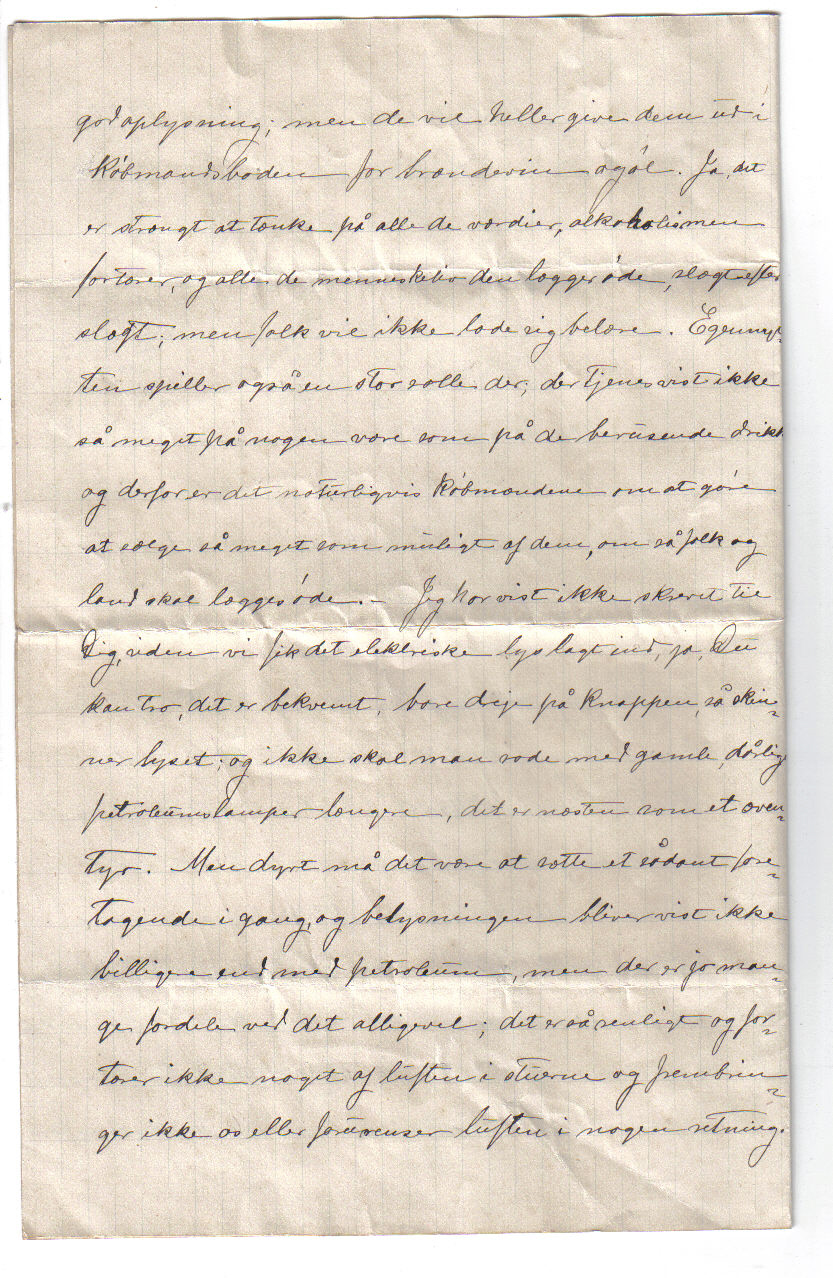 god oplysning; men de vil heller give dem ud i
købmandsboden for brændevin og øl. Ja, det
er strængt at tænke på alle de værdier, alkoholismen
fortærer, og alle de menneskeliv den lægger øde, slægt efter
slægt; men folk vil ikke lade sig belære. Egennyt-
ten spiller også en stor rolle der; der tjenes vist ikke
så meget på nogen vare som på de berusende drikke
og derfor er det naturligvis købmændene om at gøre
at sælge så meget som muligt af dem, om så folk og
land skal lægges øde. – Jeg har vist ikke skrevet til
Dig, siden vi fik det elektriske lys lagt ind, ja, Du
kan tro, det er bekvemt, bare dreje på knappen, så skin-
ner lyset; og ikke skal man rode med gamle, dårlige
petroleumslamper længere, det er næsten som et æven-
tyr. Men dyrt må det være at sætte et sådant fore-
tagende i gang, og belysningen bliver vist ikke
billigere end med petroleum, men der er jo man-
ge fordele ved det alligevel; det er så renligt og for-
tærer ikke noget af luften i stuerne og frembrin-
ger ikke os eller forurenser luften i nogen retning.